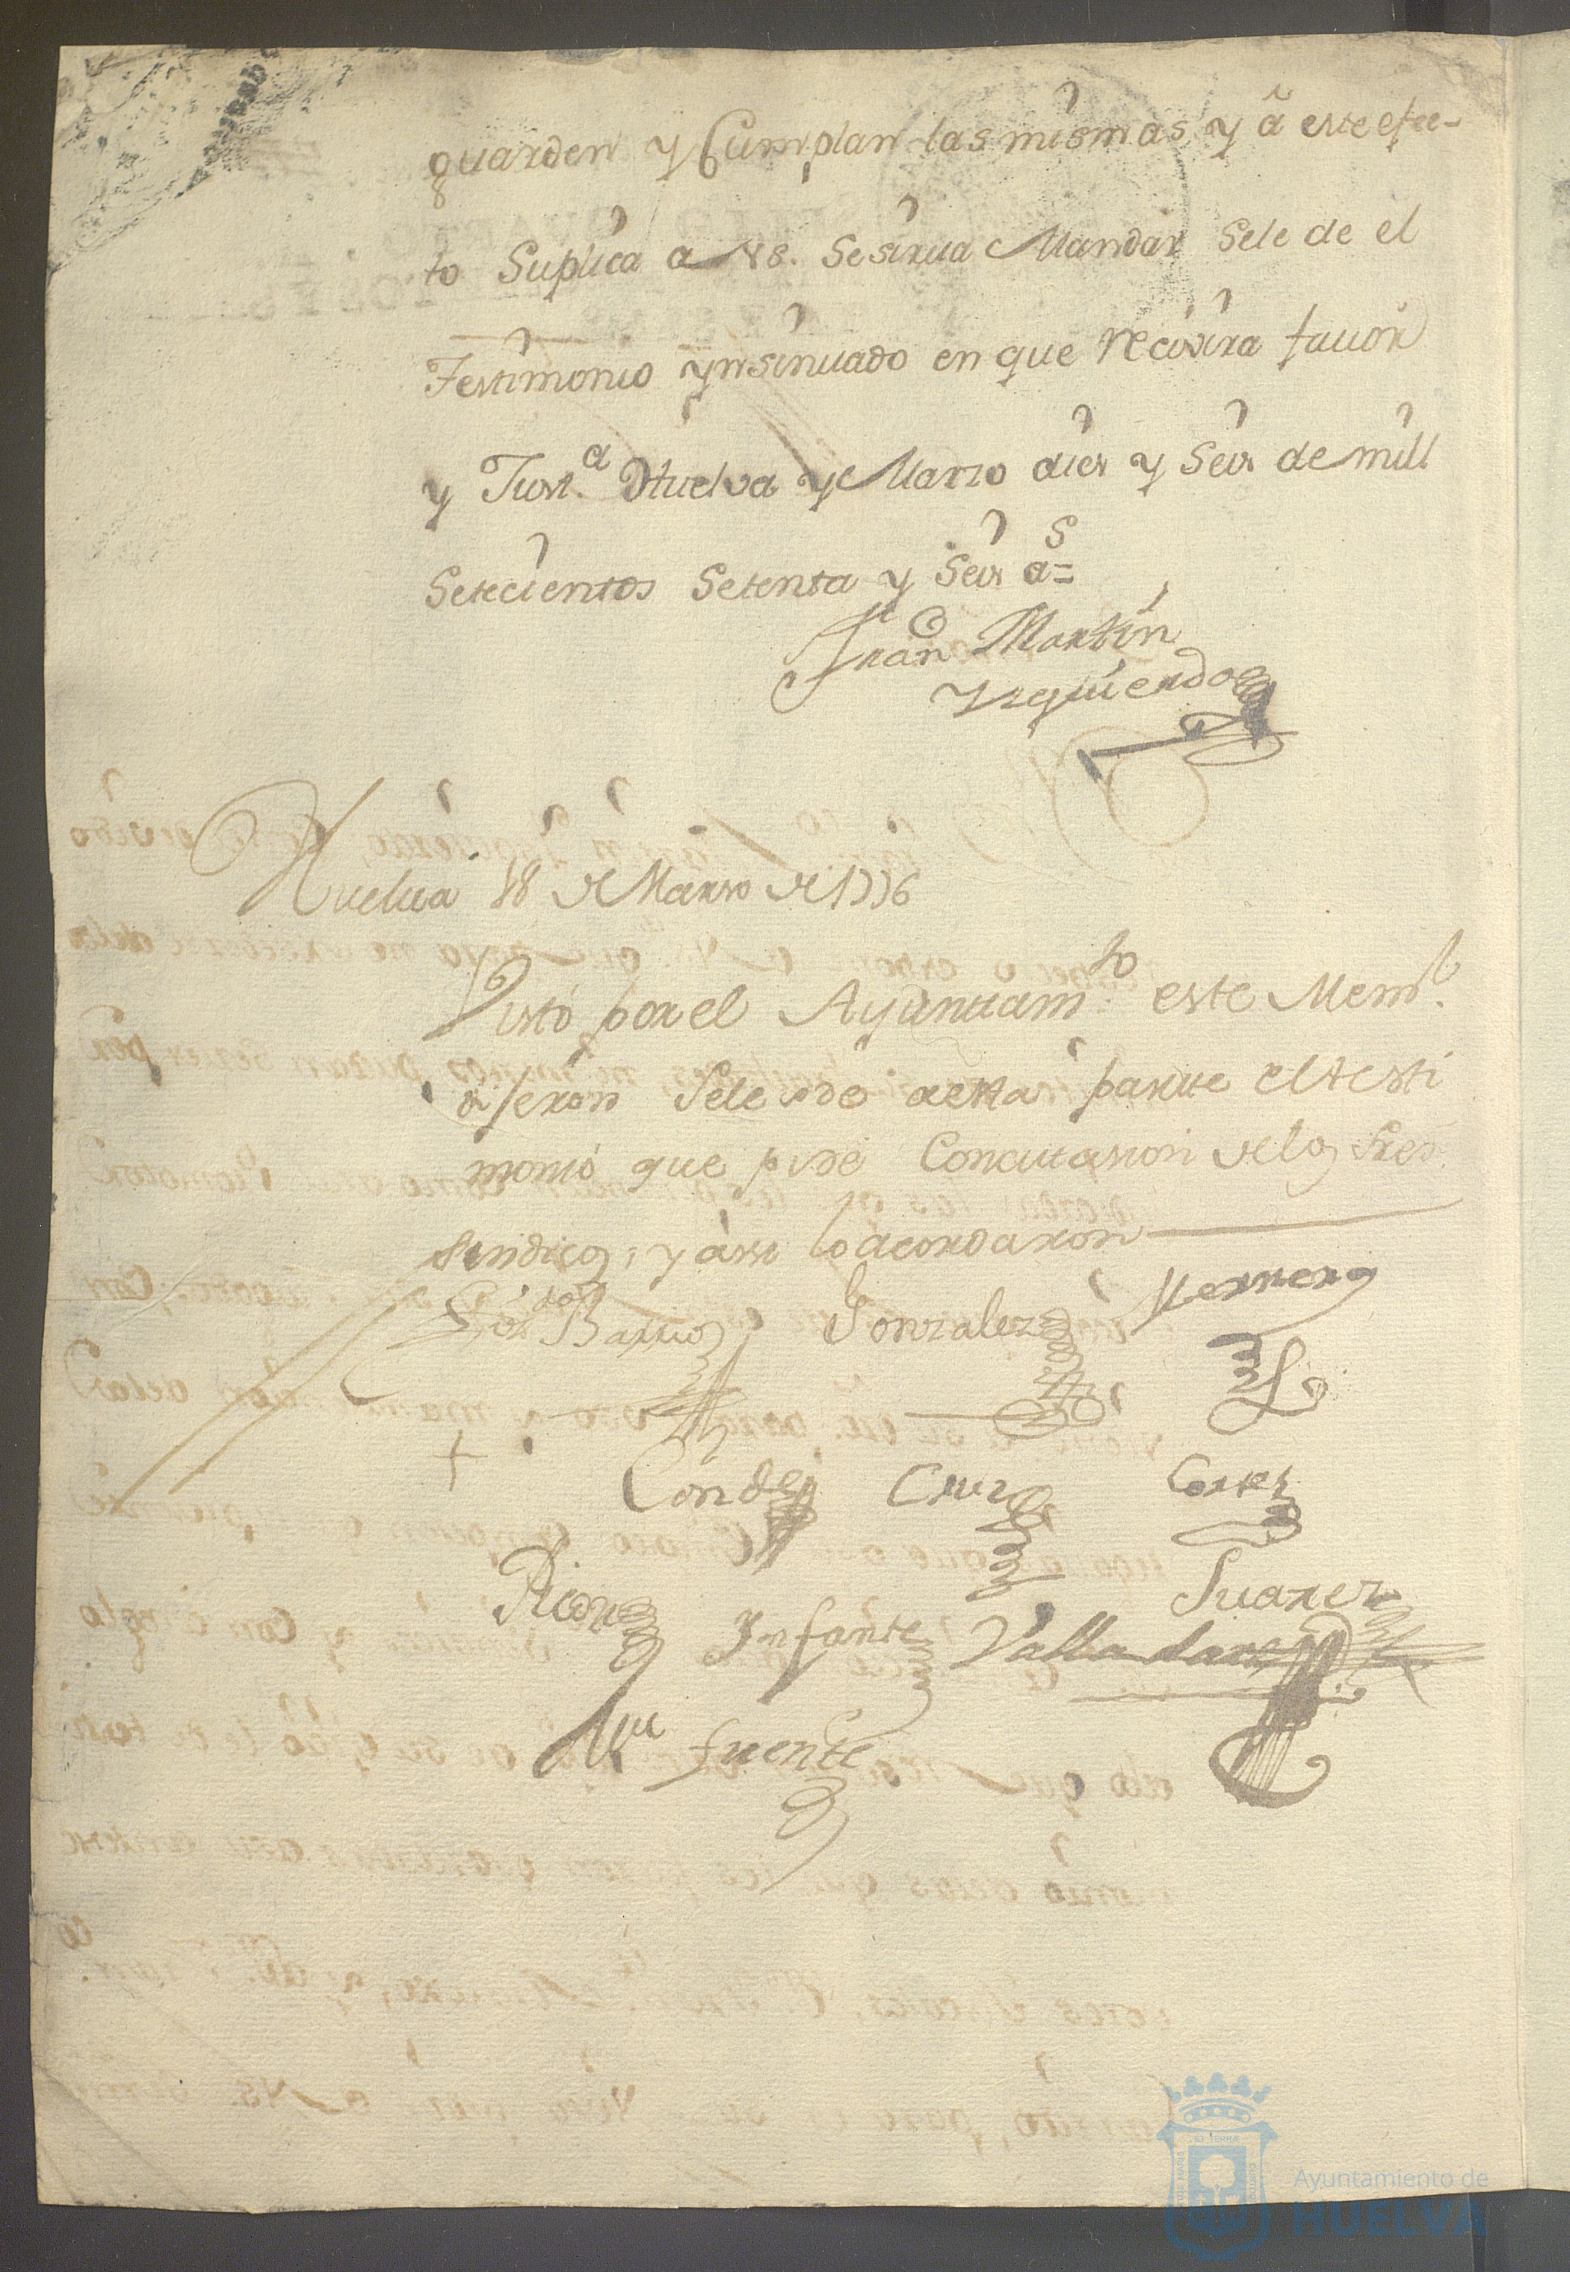 guarden y Cumplan las mismas y â este efec-
to Suplica a VS. Se sirua Mandar Sele de el
Testimonio ynsinuado en que recivira fauor
y Just.ª Huelva y Marzo dies y Seis de mill
Setecientos Setenta y Seis a.s=
Juan Martin
Yzquierdo
Huelua 18 de Marzo de 1776
Visto por el Ayuntam.to este Mem.l
dijeron Sele de a esta parte el testi
monio que pide Con citasion de los Sres
Sindicos, y assi lo acordaron
Barrio Gonzalez Herrera
Conde Cruz Cortes
Picon Infante Valladares Suarez
fuente
Ayuntamiento de
HUELVA